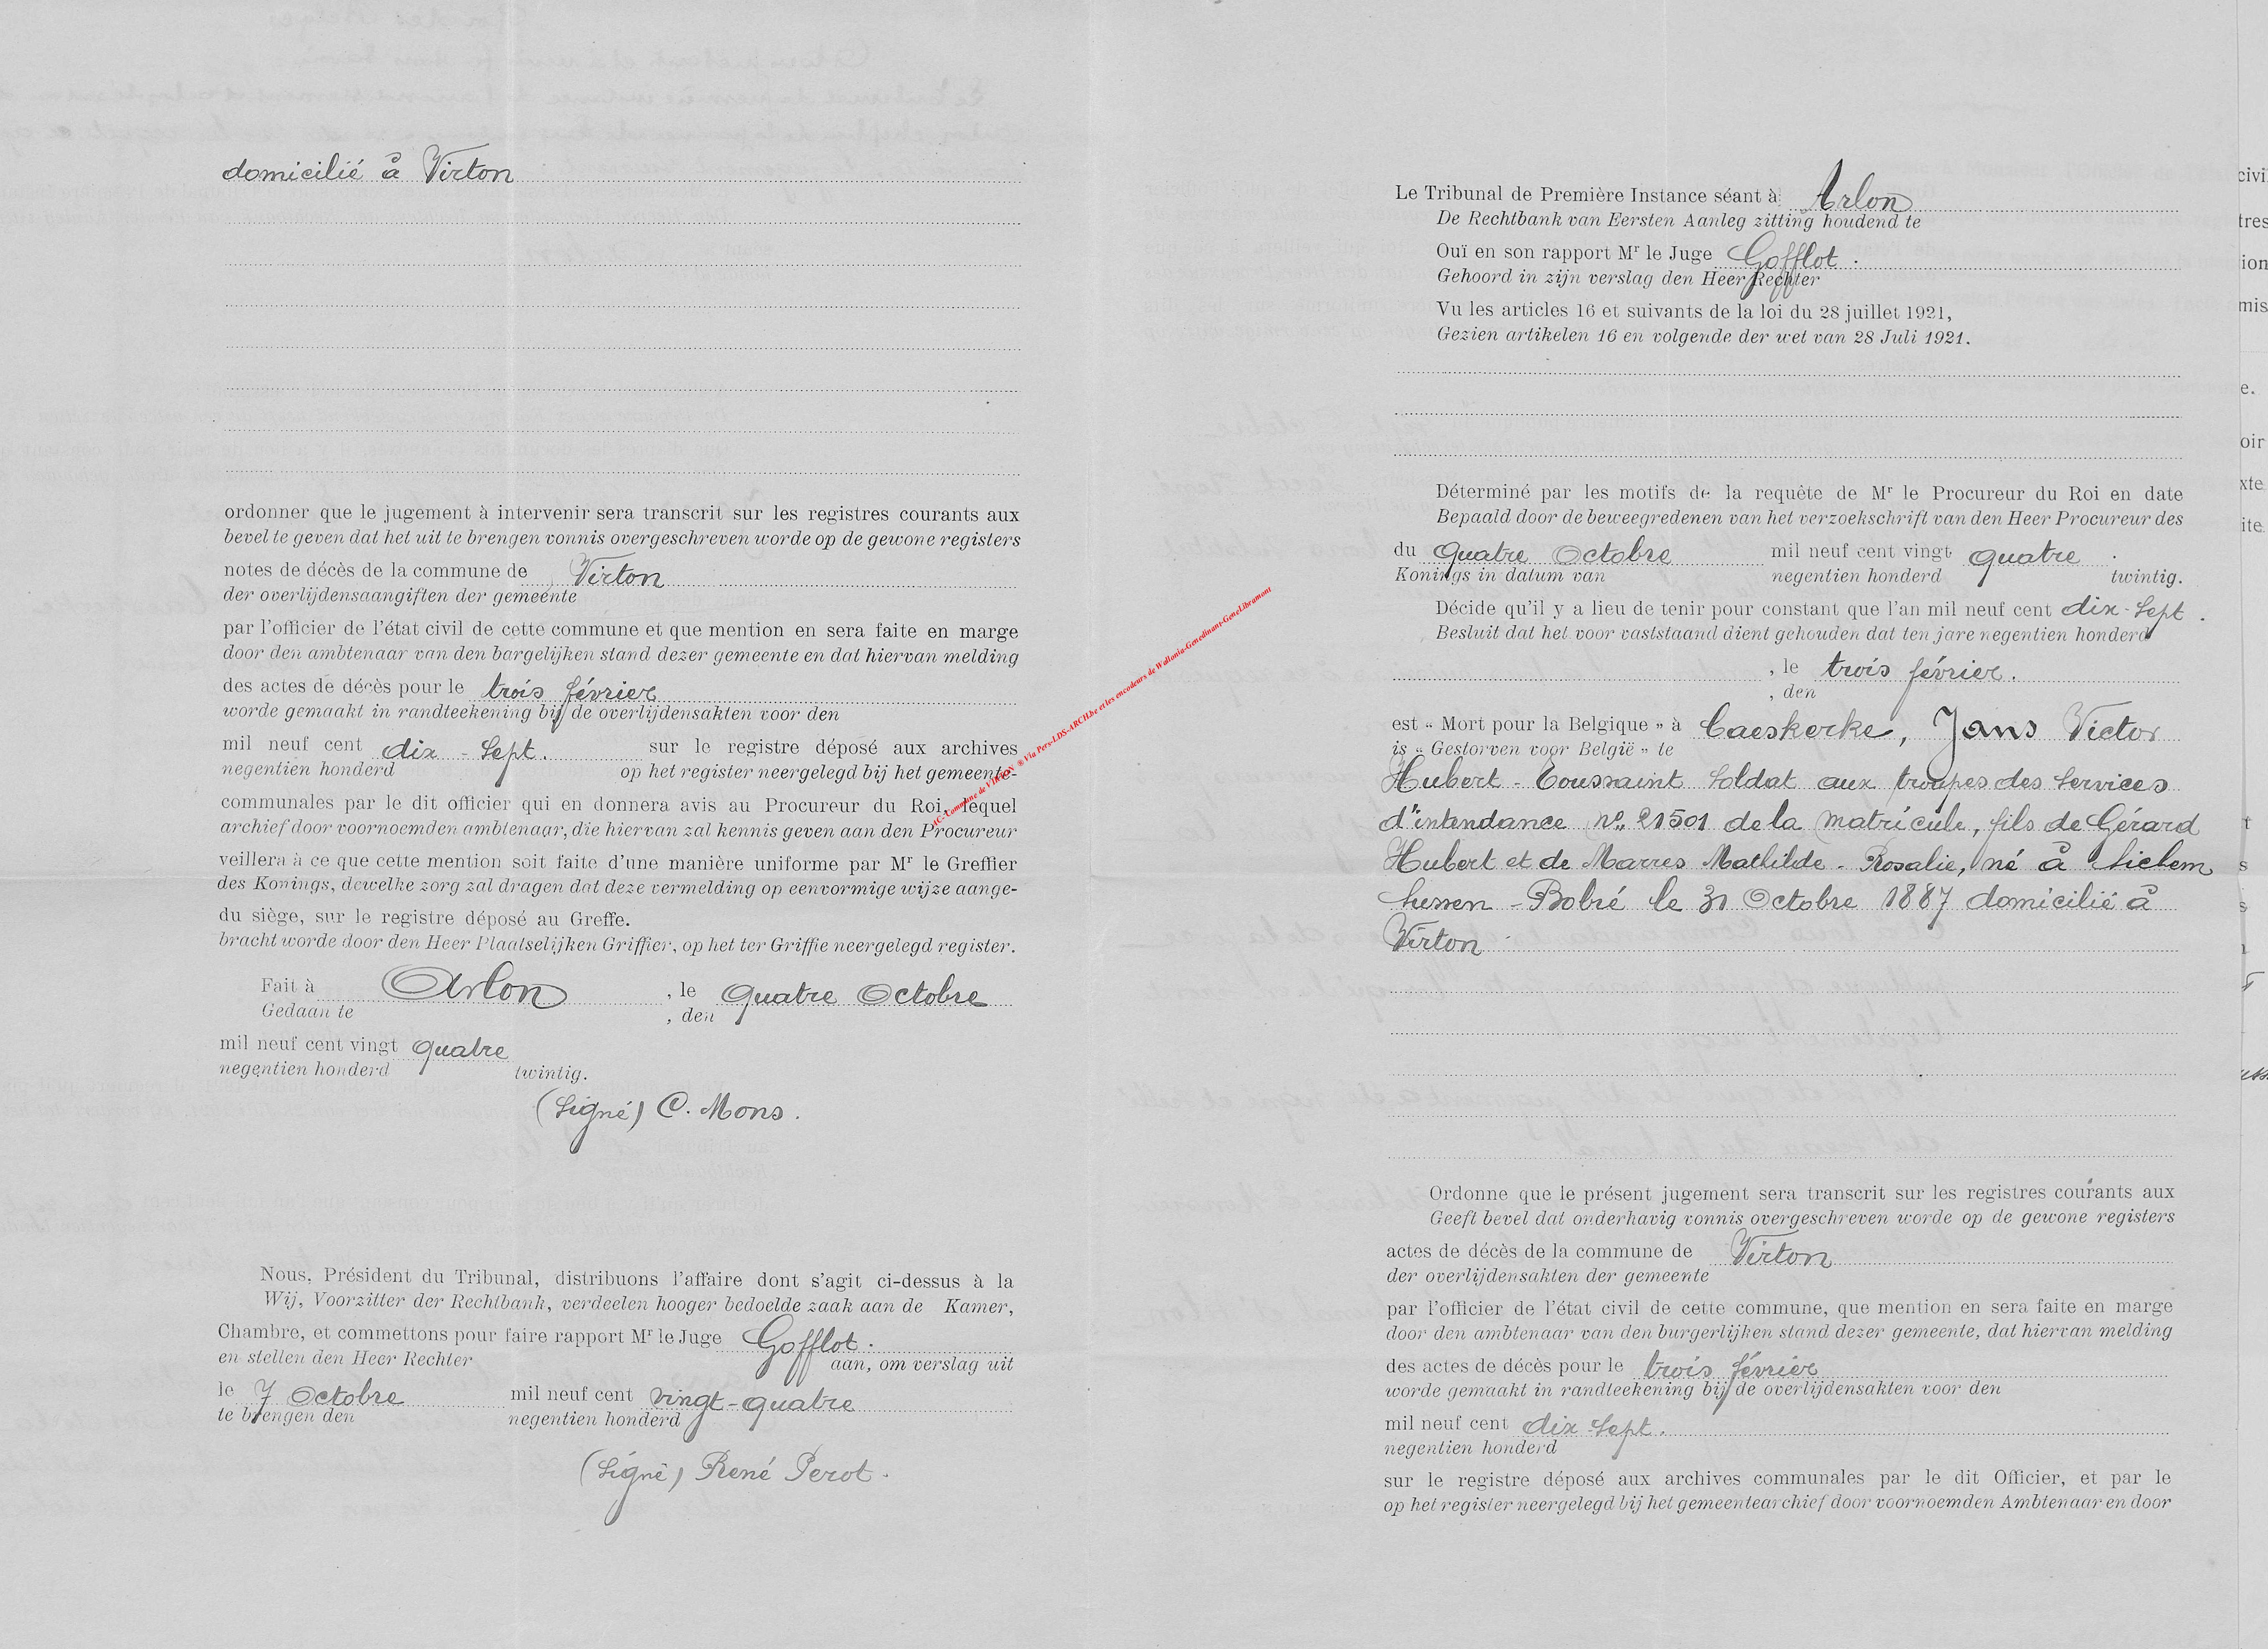 domicilié à Virton
ordonner que le jugement à intervenir sera transcrit sur les registres courants aux
bevel te geven dat het uit te brengen vonnis overgeschreven worde op de gewone registers
notes de décès de la commune de Virton
der overlijdensaangiften der gemeente
par l'officier de l'état civil de cette commune et que mention en sera faite en marge
door den ambtenaar van den bargelijken stand dezer gemeente en dat hiervan melding
des actes de décès pour le trois février
worde gemaakt in randteekening bij de overlijdensakten voor den
mil neuf cent dix-Sept. sur le registre déposé aux archives
negentien honderd op het register neergelegd bij het gemeente-
communales par le dit officier qui en donnera avis au Procureur du Roi, lequel
archief door voornoemden ambtenaar, die hiervan zal kennis geven aan den Procureur
veillera à ce que cette mention soit faite d'une manière uniforme par Mr le Greffier
des Konings, dewelke zorg zal dragen dat deze vermelding op eenvormige wijze aange-
du siège, sur le registre déposé au Greffe.
bracht worde door den Heer Plaatselijken Griffier, op het ter Griffie neergelegd register.
Fait à Arlon, le quatre Octobre
Gedaan te , den
mil neuf cent vingt quatre
negentien honderd twintig.
(Signé) C. Mons.
Nous, Président du Tribunal, distribuons l'affaire dont s'agit ci-dessus à la
Wij, Voorzitter der Rechtbank, verdeelen hooger bedoelde zaak aan de Kamer,
Chambre, et commettons pour faire rapport Mr le Juge Gofflot.
en stellen den Heer Rechter aan, om verslag uit
le 7 Octobre mil neuf cent vingt-quatre
te brengen den negentien honderd
(Signé) René Perot.
AC-Commune de VIRTON ® Via Pers-LDS-ARCH.be et les encodeurs de Wallonia-Genedinant-GeneLibramont
Le Tribunal de Première Instance séant à Arlon
De Rechtbank van Eersten Aanleg zitting houdend te
Ouï en son rapport Mr le Juge Gofflot.
Gehoord in zijn verslag den Heer Rechter
Vu les articles 16 et suivants de la loi du 28 juillet 1921,
Gezien artikelen 16 en volgende der wet van 28 Juli 1921.
Déterminé par les motifs de la requête de Mr le Procureur du Roi en date
Bepaald door de beweegredenen van het verzoekschrift van den Heer Procureur des
du quatre Octobre mil neuf cent vingt quatre.
Konings in datum van negentien honderd twintig.
Décide qu'il y a lieu de tenir pour constant que l'an mil neuf cent dix-Sept.
Besluit dat het voor vaststaand dient gehouden dat ten jare negentien honderd
, le trois février.
, den
est « Mort pour la Belgique » à Caeskerke, Jans Victor
is « Gestorven voor België » te
Hubert-Toussaint Soldat aux troupes des Services
d'intendance no 21501 de la matricule, fils de Gérard
Hubert et de Marres Mathilde-Rosalie, né à Sichem
Sussen-Bolré le 31 Octobre 1887 domicilié à
Virton
Ordonne que le présent jugement sera transcrit sur les registres courants aux
Geeft bevel dat onderhavig vonnis overgeschreven worde op de gewone registers
actes de décès de la commune de Virton
der overlijdensakten der gemeente
par l'officier de l'état civil de cette commune, que mention en sera faite en marge
door den ambtenaar van den burgerlijken stand dezer gemeente, dat hiervan melding
des actes de décès pour le trois février
worde gemaakt in randteekening bij de overlijdensakten voor den
mil neuf cent dix Sept.
negentien honderd
sur le registre déposé aux archives communales par le dit Officier, et par le
op het register neergelegd bij het gemeentearchief door voornoemden Ambtenaar en door